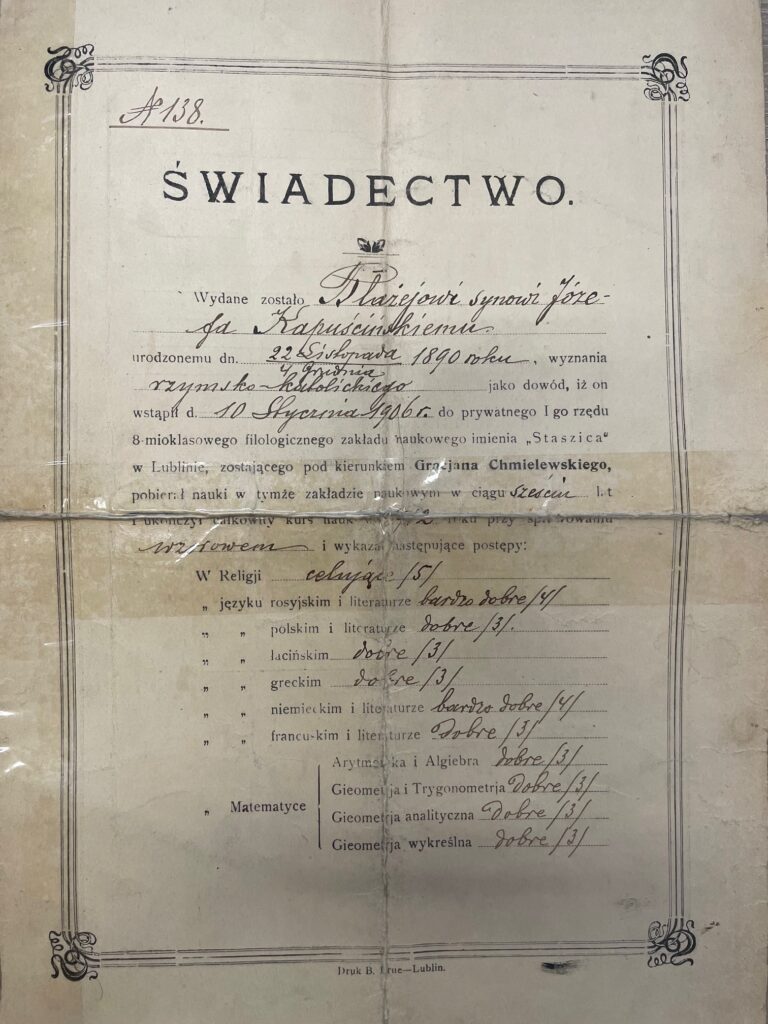 № 138.
ŚWIADECTWO.
Wydane zostało Błażejowi synowi Józe-
fa Kapuścińskiemu
urodzonemu dn. 22 Listopada 1890 roku, wyznania
4 Grudnia
rzymsko-katolickiego jako dowód, iż on
wstąpił d. 10 Stycznia 1906 r. do prywatnego I go rzędu
8-mioklasowego filologicznego zakładu naukowego imienia „Staszica"
w Lublinie, zostającego pod kierunkiem Gracjana Chmielewskiego,
pobierał nauki w tymże zakładzie naukowym w ciągu sześciu l.t
i ukończył całkowity kurs nauk roku przy sprawowaniu
wzorowem i wykazał następujące postępy:
W Religji celujące /5/
„ języku rosyjskim i literaturze bardzo dobre /4/
„ „ polskim i literaturze dobre /3/.
„ „ łacińskim dobre /3/
„ „ greckim dobre /3/
„ „ niemieckim i literaturze bardzo dobre /4/
„ „ francuskim i literaturze Dobre /3/
Arytmetyka i Algiebra dobre /3/
Gieometrja i Trygonometrja Dobre /3/
„ Matematyce
Gieometrja analityczna Dobre /3/
Gieometrja wykreślna dobre /3/
Druk B. Drue—Lublin.